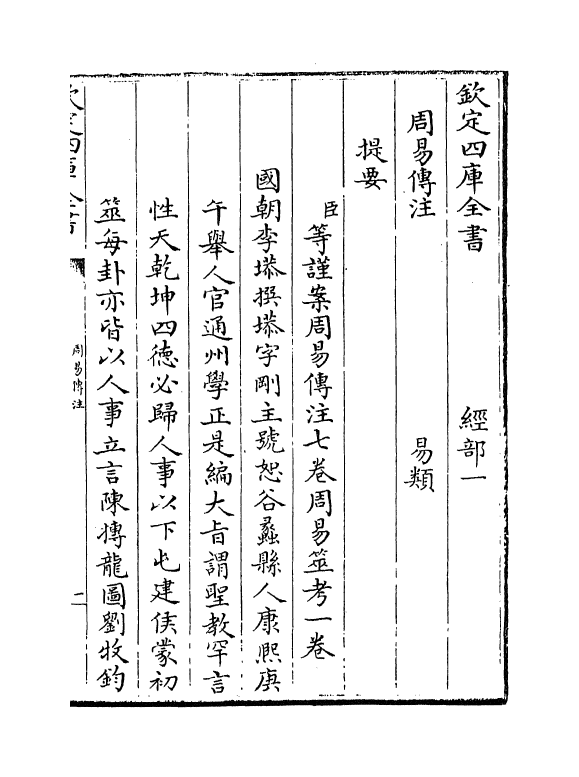 欽定四庫全書　經部一
周易傳注　易類
提要
臣等謹案周易傳注七卷周易筮考一卷
國朝李塨撰塨字剛主號恕谷蠡縣人康熙庚
午舉人官通州學正是編大旨謂聖教罕言
性天乾坤四德必歸人事以下屯建侯蒙初
筮每卦亦皆以人事立言陳摶龍圖劉牧鈎
欽定四庫全書
周易傳注